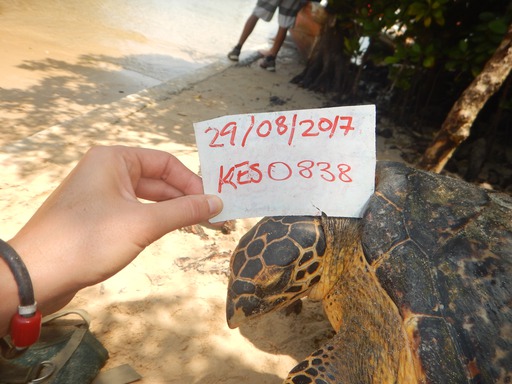 29/08/2017
KES0838